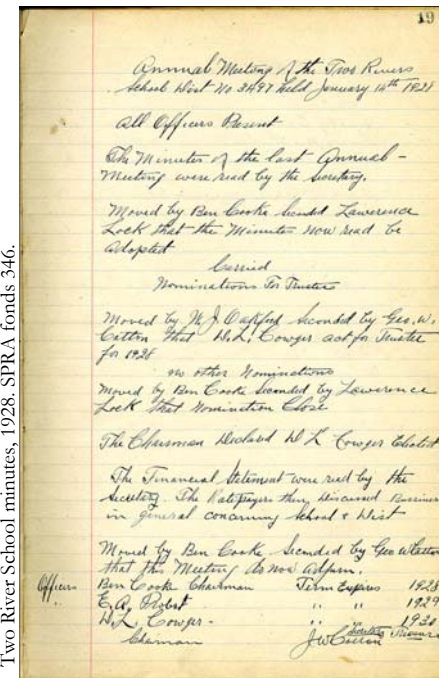 19
Annual Meeting of the Two Rivers
School Dist No 3497 held January 14th 1928
All Officers Present
The Minutes of the last Annual -
Meeting were read by the Secretary.
Moved by Ben Cooke Seconded Lawerence
Lock that the Minutes now read be
Adopted
Carried
Nominations For Trustee
Moved by M. J. Oakford Seconded by Geo. W.
Catton that W. L. Cowger act for Trustee
for 1928
no other Nominations
Moved by Ben Cooke Seconded by Lawerence
Lock that Nomination Close
The Chairman Declared W L Cowger Elected
The Financial Statement were read by the
Secretary. The Ratepayers then discussed Business
in general concerning School & Dist
Moved by Ben Cooke Seconded by Geo W Catton
that this Meeting do now Adjurn.
Officers Ben Cooke Chairman Term Expires 1928
" E. A. Probst " " 1929
W. L. Cowger - " " 1930
Chairman J W Catton Secretary Treasurer
Two River School minutes, 1928. SPRA fonds 346.